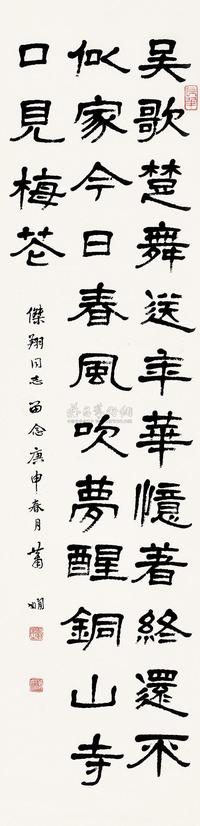 吴歌楚舞送年華憶著終還不
似家今日春風吹夢醒銅山寺
口見梅花
傑翔同志留念庚申春月蕭嫻